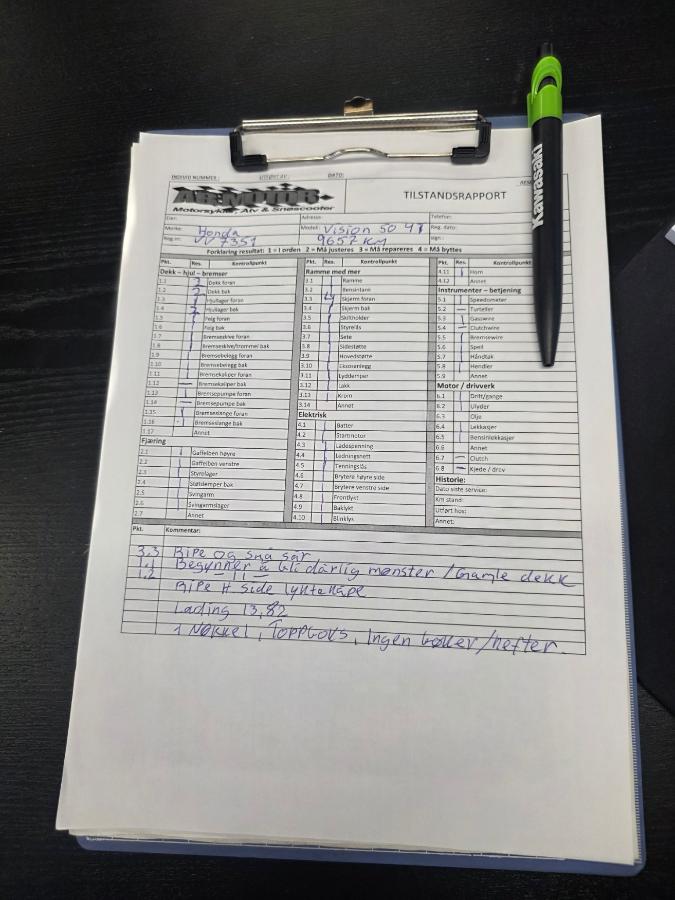 INDIVID NUMMER: UTFØRT AV: DATO:
TILSTANDSRAPPORT
Motorsykler, Atv & Snøscooter
Eier: Adresse: Telefon:
Merke: Honda Modell: Vision 50 4T Reg. dato:
Reg.nr: VV 7351 9657 KM Sign.:
Forklaring resultat: 1 = I orden 2 = Må justeres 3 = Må repareres 4 = Må byttes
Pkt. Res. Kontrollpunkt
Dekk – hjul – bremser
1.1 Dekk foran
1.2 Dekk bak
1.3 Hjullager foran
1.4 Hjullager bak
1.5 Felg foran
1.6 Felg bak
1.7 Bremseskive foran
1.8 Bremseskive/trommel bak
1.9 Bremsebelegg foran
1.10 Bremsebelegg bak
1.11 Bremsekaliper foran
1.12 — Bremsekaliper bak
1.13 Bremsepumpe foran
1.14 — Bremsepumpe bak
1.15 Bremseslange foran
1.16 Bremseslange bak
1.17 Annet
Fjæring
2.1 Gaffelben høyre
2.2 Gaffelben venstre
2.3 Styrelager
2.4 Støtdemper bak
2.5 Svingarm
2.6 Svingarmslager
2.7 Annet
Pkt. Res. Kontrollpunkt
Ramme med mer
3.1 Ramme
3.2 Bensintank
3.3 4 Skjerm foran
3.4 Skjerm bak
3.5 Skiltholder
3.6 Styrelås
3.7 Sete
3.8 Sidestøtte
3.9 Hovedstøtte
3.10 Eksosanlegg
3.11 Lyddemper
3.12 Lakk
3.13 Krom
3.14 Annet
Elektrisk
4.1 Batteri
4.2 Startmotor
4.3 Ladespenning
4.4 Ledningsnett
4.5 Tenningslås
4.6 Brytere høyre side
4.7 Brytere venstre side
4.8 Frontlykt
4.9 Baklykt
4.10 Blinklys
Pkt. Res. Kontrollpunkt
4.11 Horn
4.12 Annet
Instrumenter – betjening
5.1 Speedometer
5.2 — Turteller
5.3 Gasswire
5.4 — Clutchwire
5.5 Bremsewire
5.6 Speil
5.7 Håndtak
5.8 Hendler
5.9 Annet
Motor / drivverk
6.1 Drift/gange
6.2 Ulyder
6.3 Olje
6.4 Lekkasjer
6.5 Bensinlekkasjer
6.6 Annet
6.7 — Clutch
6.8 — Kjede / drev
Historie:
Dato siste service:
Km stand:
Utført hos:
Annet:
Pkt. Kommentar:
3.3 Ripe og små sår
1.1 Begynner å bli dårlig mønster / Gamle dekk
1.2 — 11 —
Ripe H side lyktekåpe
Lading 13,82
1 Nøkkel, Toppboks, Ingen bøker/hefter.
Kawasaki